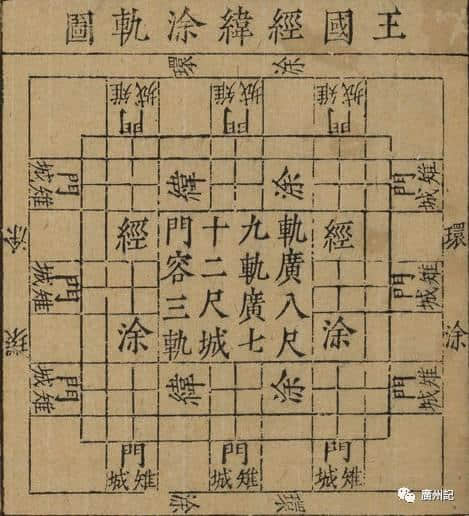 王國經緯涂軌圖
環涂
門
城雉
門
城雉
門
城雉
緯涂
門
城雉
門
城雉
環涂
經涂
軌廣八尺
九軌廣七
十二尺城
門容三軌
經涂
環涂
門
城雉
門
城雉
緯涂
門
城雉
門
城雉
門
城雉
門
城雉
門
城雉
環涂
廣州記